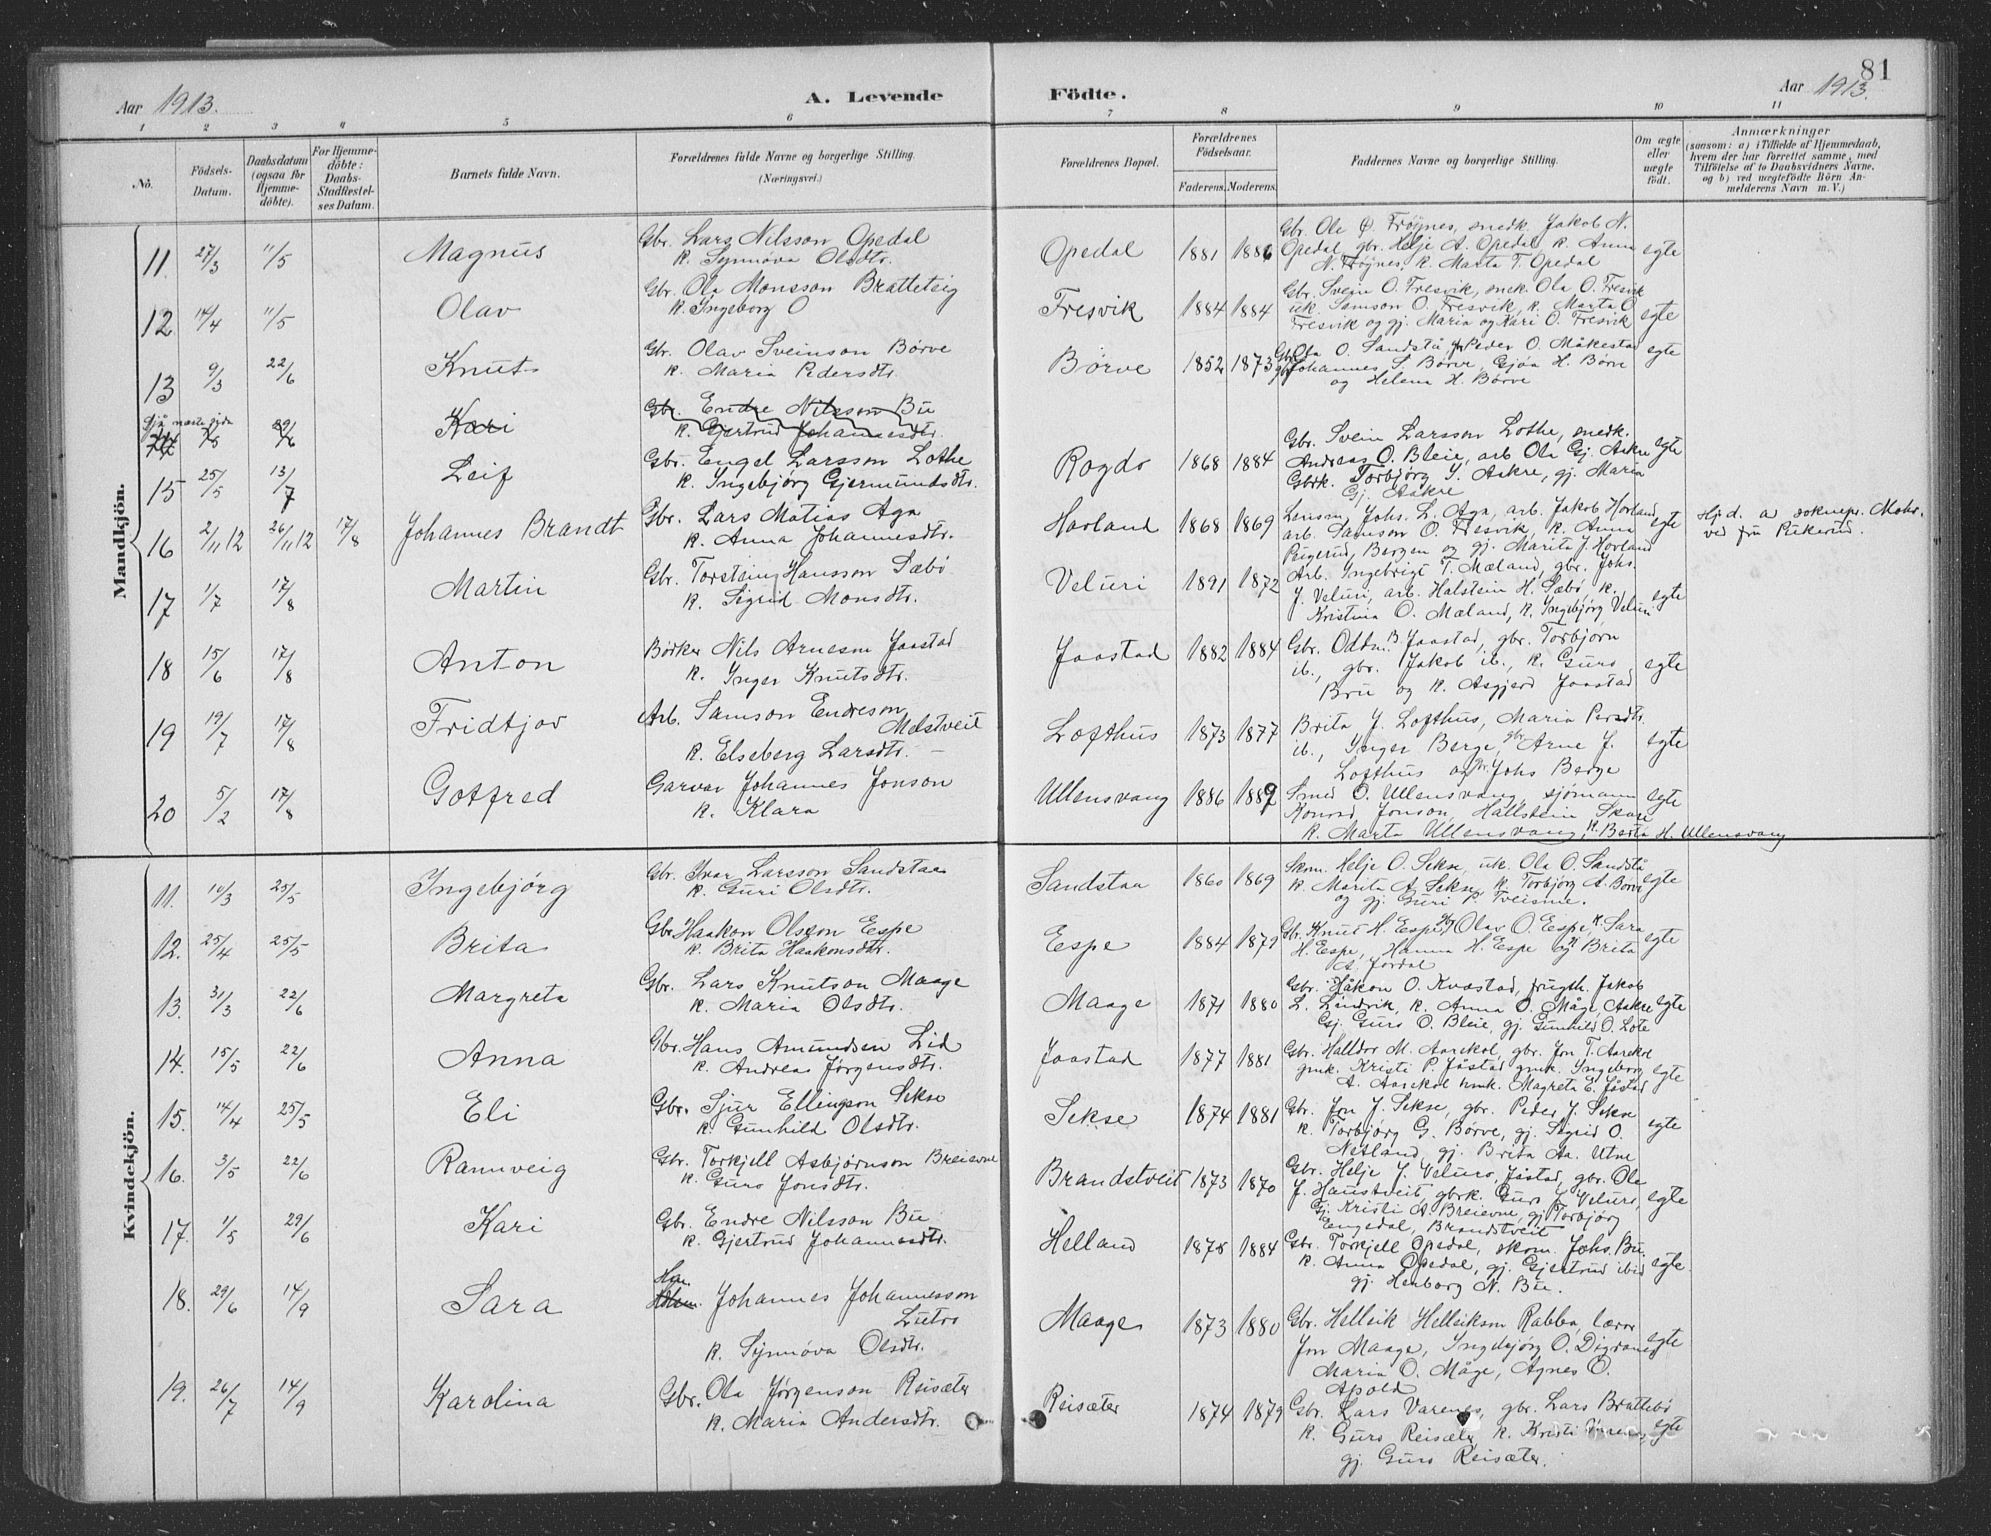 81
Aar 1913.
A. Levende
Födte.
Aar 1913.
1 2 3 4 5 6 7 8 9 10 11
No.
Födsels-Datum.
Daabsdatum (ogsaa for Hjemme-döbte).
For Hjemme-döbte: Daabs-Stadfæstel-ses Datum.
Barnets fulde Navn.
Forældrenes fulde Navne og borgerlige Stilling.
(Næringsvei.)
Forældrenes Bopæl.
Forældrenes Födselsaar.
Faderens. Moderens.
Faddernes Navne og borgerlige Stilling.
Om ægte eller uægte födt.
Anmærkninger
(saasom: a) i Tilfælde af Hjemmedaab, hvem der har forrettet samme, med Tilföielse af to Daabsvidners Navne, og b) ved uægtefödte Börn An-melderens Navn m. V.)
Mandkjön.
11. 27/3 11/5 Magnus Gbr. Lars Nilsson Opedal
k. Synnöva Olsdtr.
Opedal 1881 1886 Gbr. Ole Frøynes, snedk. Jakob N.
Opedal, gbr. Helje A. Opedal, k. Anna
N. Frøynes, k. Marta T. Opedal egte
12 14/4 11/5 Olav Gbr. Ola Monsson Bratteteig
k. Ingeborg O
Fresvik 1884 1884 Gbr. Svein O. Fresvik, snek. Ola O. Fresvik
uk. Samson O. Fresvik, k. Marta O
Fresvik og gj. Maria og Kari O. Fresvik egte
13 9/3 22/6 Knut Gbr. Olav Sveinson Börve
k. Maria Pedersdtr.
Börve 1852 1873 Gbr. Ola O. Sandstå, gbr. Peder O. Måkestad
gbr. Johannes S. Börve, Gjöa H. Börve
og Helena H. Börve egte
Sjå næste side
Kari Gbr. Endre Nilsson Bu
k. Gjertrud Johannesdtr.
15 25/5 13/7 Leif Gbr. Engel Larsson Lothe
k. Ingebjørg Gjermundsdtr.
Rogdo 1868 1884 Gbr. Svein Larsson Lothe, snedk.
Andreas O. Bleie, arb Ola Gj. Aakre
Gbrk. Torbjørg Y. Aakre, gj. Maria
Gj. Aakre egte
16 2/11 12 26/11 12 17/8 Johannes Brandt Gbr. Lars Matias Aga
k. Anna Johannesdtr.
Havland 1868 1869 Lensm. Johs. L. Aga, arb. Jakob Hovland,
arb. Samson O. Fresvik, k. Anna
Bergen og gj. Marita J. Hovland egte
Hj. d. av soknepr. Mohr.
ved fru
17 1/7 17/8 Martin Gbr. Torstein Hansson Sæbö
k. Sigrid Monsdtr.
Veluri 1891 1872 Arb. Ingebrigt T. Mæland, gbr. Johs.
J. Veluri, arb. Halstein H. Sæbö, k.
Kristina O. Mæland, k. Ingebjørg Veluri egte
18 15/6 17/8 Anton Bödker Nils Arneson Jaastad
k. Inger Knutsdtr.
Jaastad 1882 1884 Gbr. Oddm. B. Jaastad, gbr. Torbjorn
ib., gbr. Jakob ib., k. Guro
Bru og k. Asgjerd Jaastad egte
19 19/7 17/8 Fridtjov Arb. Samson Endreson
Mælstveit
k. Elseberg Larsdtr.
Lofthus 1873 1877 Brita J. Lofthus, Maria Persdtr.
ib., Inger Berge, gbr. Arne J.
Lofthus og Johs Berge egte
20 5/2 17/8 Gotfred Garvar Johannes Jonson
k. Klara
Ullensvang 1886 1889 Smed O. Ullensvang, sjömann
Konrad Jonson, Hallstein Skare
k. Marta Ullensvang, k. Berta H. Ullensvang egte
Kvindekjön.
11. 10/3 25/5 Ingebjørg Gbr. Ivar Larsson Sandstaa
k. Guri Olsdtr.
Sandstaa 1860 1869 Skom. Helje O. Sekse, uk. Ola O. Sandstå
k. Marita A. Sekse, k. Torbjörg A. Börve
og gj. Guri P. Tveisme. egte
12. 25/4 25/5 Brita Gbr. Haakon Olsson Espe
k. Brita Haakonsdtr.
Espe 1884 1879 Gbr. Knud H. Espe, gbr. Olav O. Espe, k. Sara
H. Espe, Hanna H. Espe og k. Brita
A. Jordal egte
13. 31/3 22/6 Margreta Gbr. Lars Knutson Maage
k. Maria Olsdtr.
Maage 1871 1880 Gbr. Håkon O. Kvæstad, frugth. Jakob
L. Lindvik, k. Anna O. Måge, Aakre
Gj. Guro O. Bleie, gj. Gunhild O. Lote egte
14. 15/5 22/6 Anna Gbr. Hans Amundsen Lid
k. Andrea Jørgensdtr.
Jaastad 1877 1881 Gbr. Halldor M. Aarekol, gbr. Jon T. Aarekol
gmk. Kristi P. Jåstad, gmk. Ingeborg
A. Aarekol hmk. Magreta E. Jåstad egte
15. 14/4 25/5 Eli Gbr. Sjur Ellingson Sekse
k. Gunhild Olsdtr.
Sekse 1874 1881 Gbr. Jon J. Sekse, gbr. Peder J. Sekse
k. Torbjörg G. Börve, gj. Sigrid O.
Netland, gj. Brita Aa. Utne egte
16. 3/5 22/6 Rannveig Gbr. Torkjell Asbjørnson Breievne
k. Guro Jonsdtr.
Brandstveit 1873 1870 Gbr. Helje J. Veluro, Jåstad, gbr. Ola
J. Haustveit, gbrk. Guro J. Veluro,
Gj. Kristi A. Breievne, gj. Torbjörg
Engedal, Brandstveit egte
17. 1/5 29/6 Kari Gbr. Endre Nilsson Bu
k. Gjertrud Johannesdtr.
Helland 1875 1884 Gbr. Torkjell Opedal, skom. Johs. Bu.
k. Anna Opedal, gj. Gjertrud ibid
gj. Herborg N. Bu. egte.
18. 29/6 14/9 Sara Johannes Johannesson
Lutro
k. Synnöva Olsdtr.
Maage 1873 1880 Gbr. Hellsik Hellsikson Rabba, lærer
Jon Maage, Ingebjörg O. Digranes
Maria O. Måge, Agnes O.
Apold egte
19. 26/7 14/9 Karolina Gbr. Ola Jörgenson Reisæter
k. Maria Andersdtr.
Reisæter 1874 1879 Gbr. Lars Varenes, gbr. Lars Brattebö
k. Guro Reisæter, k. Kristi
gj. Guro Reisæter. egte